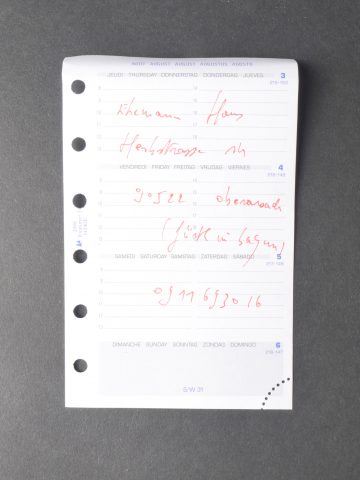 AOUT AUGUST AUGUST AUGUSTUS AGOSTO
JEUDI THURSDAY DONNERSTAG DONDERDAG JUEVES 3
215-150
Hans
VENDREDI FRIDAY FREITAG VRIJDAG VIERNES 4
216-149
90522 Oberasbach
(Fürth in Bayern)
SAMEDI SATURDAY SAMSTAG ZATERDAG SABADO 5
217-148
0911 693016
DIMANCHE SUNDAY SONNTAG ZONDAG DOMINGO 6
218-147
S/W 31